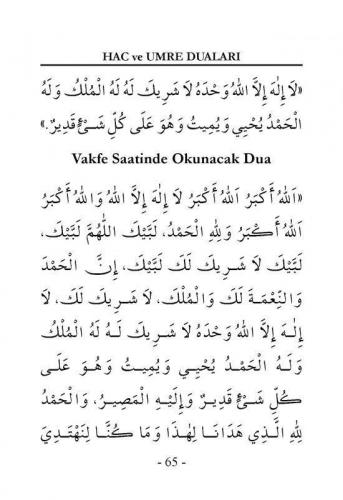 HAC ve UMRE DUALARI
«لَا إِلٰهَ إِلَّا اللهُ وَحْدَهُ لَا شَرِيكَ لَهُ لَهُ الْمُلْكُ وَلَهُ
الْحَمْدُ يُحْيِي وَيُمِيتُ وَهُوَ عَلَى كُلِّ شَيْءٍ قَدِيرٌ.»
Vakfe Saatinde Okunacak Dua
«اَللهُ أَكْبَرُ اَللهُ أَكْبَرُ لَا إِلٰهَ إِلَّا اللهُ وَاللهُ أَكْبَرُ
اَللهُ أَكْبَرُ وَلِلّٰهِ الْحَمْدُ، لَبَّيْكَ اَللّٰهُمَّ لَبَّيْكَ،
لَبَّيْكَ لَا شَرِيكَ لَكَ لَبَّيْكَ، إِنَّ الْحَمْدَ
وَالنِّعْمَةَ لَكَ وَالْمُلْكَ، لَا شَرِيكَ لَكَ، لَا
إِلٰهَ إِلَّا اللهُ وَحْدَهُ لَا شَرِيكَ لَهُ لَهُ الْمُلْكُ
وَلَهُ الْحَمْدُ يُحْيِي وَيُمِيتُ وَهُوَ عَلَى
كُلِّ شَيْءٍ قَدِيرٌ وَإِلَيْهِ الْمَصِيرُ، وَالْحَمْدُ
لِلّٰهِ الَّذِي هَدَانَا لِهٰذَا وَمَا كُنَّا لِنَهْتَدِيَ
- 65 -